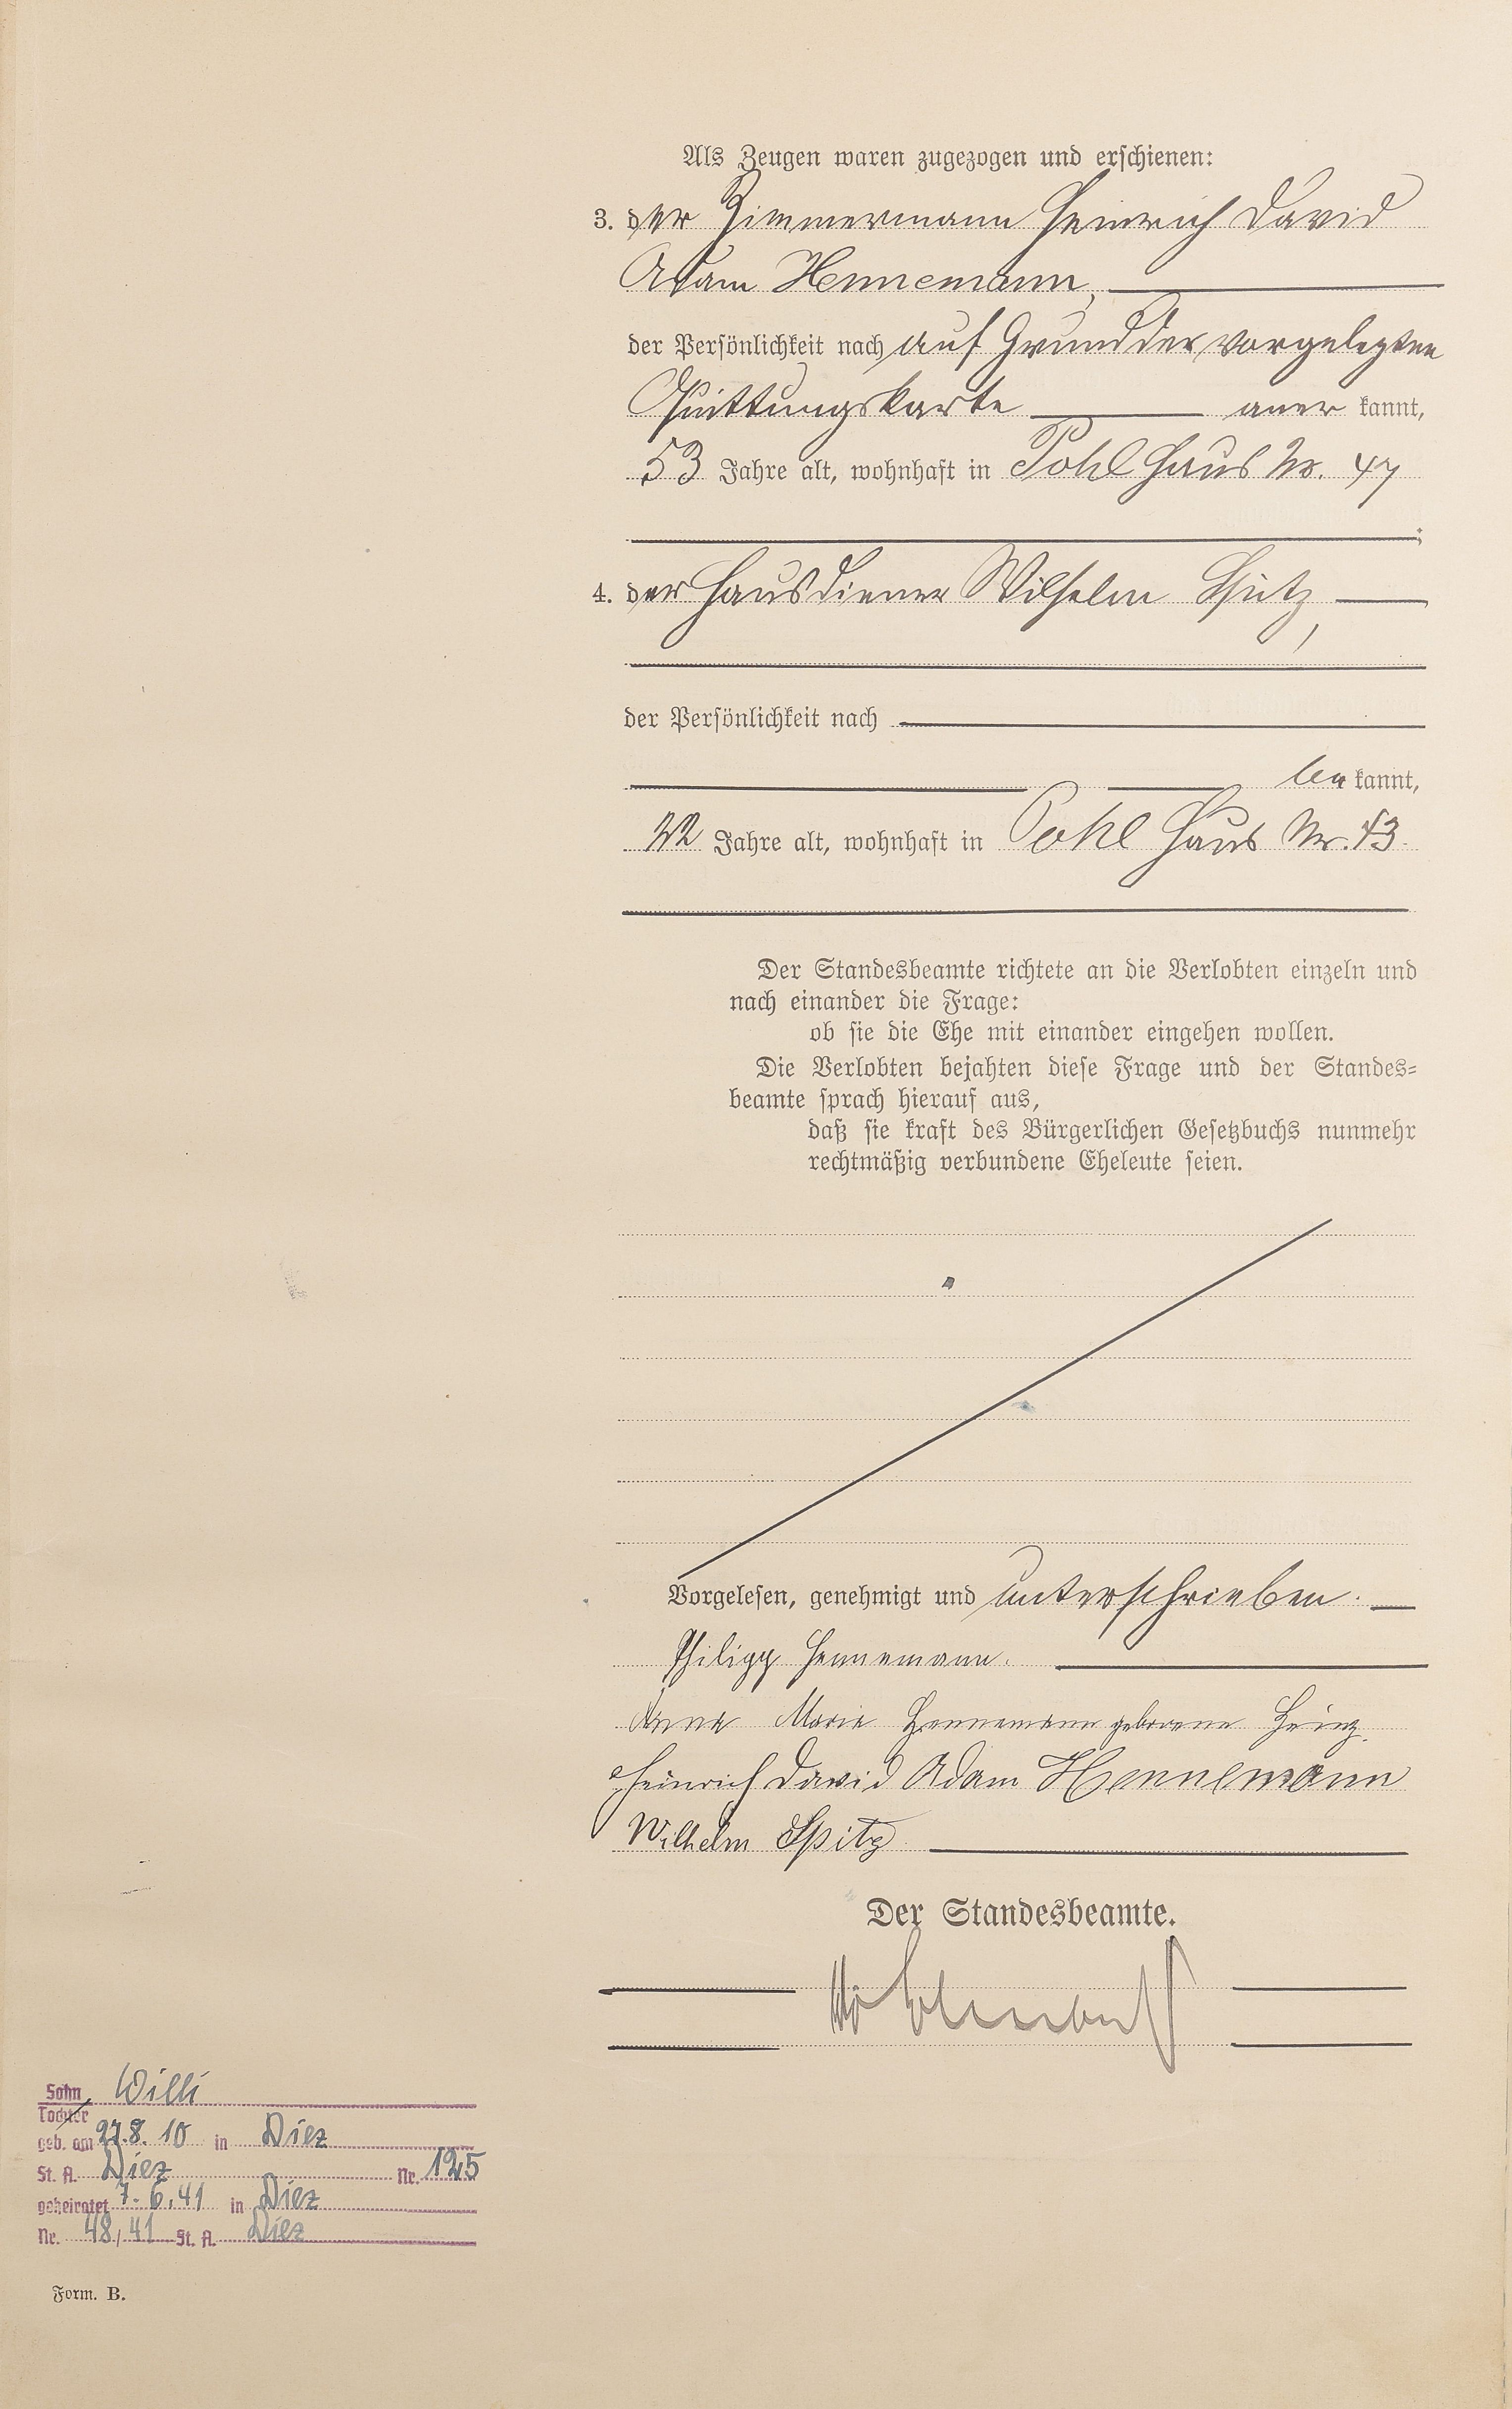 Als Zeugen waren zugezogen und erschienen:
3. der Zimmermann Heinrich David
Adam Hennemann,
der Persönlichkeit nach auf Grund der vorgelegten
Quittungskarte anerkannt,
53 Jahre alt, wohnhaft in Pohl Haus Nr. 47
;
4. der Hausdiener Wilhelm Spitz,
der Persönlichkeit nach
bekannt,
22 Jahre alt, wohnhaft in Pohl Haus Nr. 43.
Der Standesbeamte richtete an die Verlobten einzeln und
nach einander die Frage:
ob sie die Ehe mit einander eingehen wollen.
Die Verlobten bejahten diese Frage und der Standes-
beamte sprach hierauf aus,
daß sie kraft des Bürgerlichen Gesetzbuchs nunmehr
rechtmäßig verbundene Eheleute seien.
Vorgelesen, genehmigt und unterschrieben.
Philipp Hennemann.
Anna Maria Hennemann geborene Heinz.
Heinrich David Adam Hennemann
Wilhelm Spitz
Der Standesbeamte.
Sohn Willi
Tochter
geb. am 27.8.10 in Diez
St. A. Diez Nr. 125
geheiratet 7.6.41 in Diez
Nr. 48/41 St. A. Diez
Form. B.